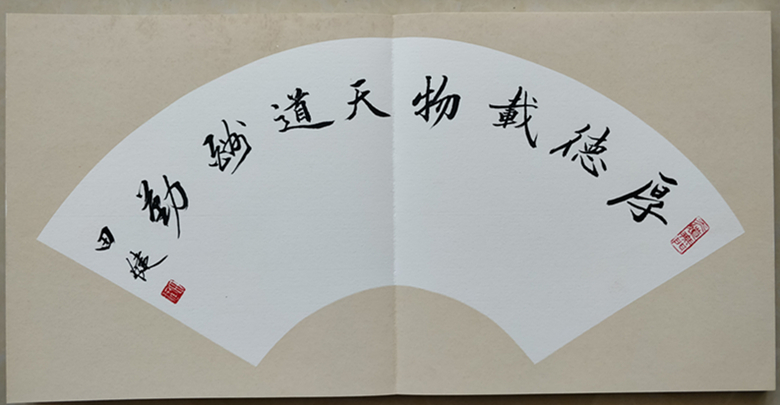 厚德載物天道酬勤
田捷